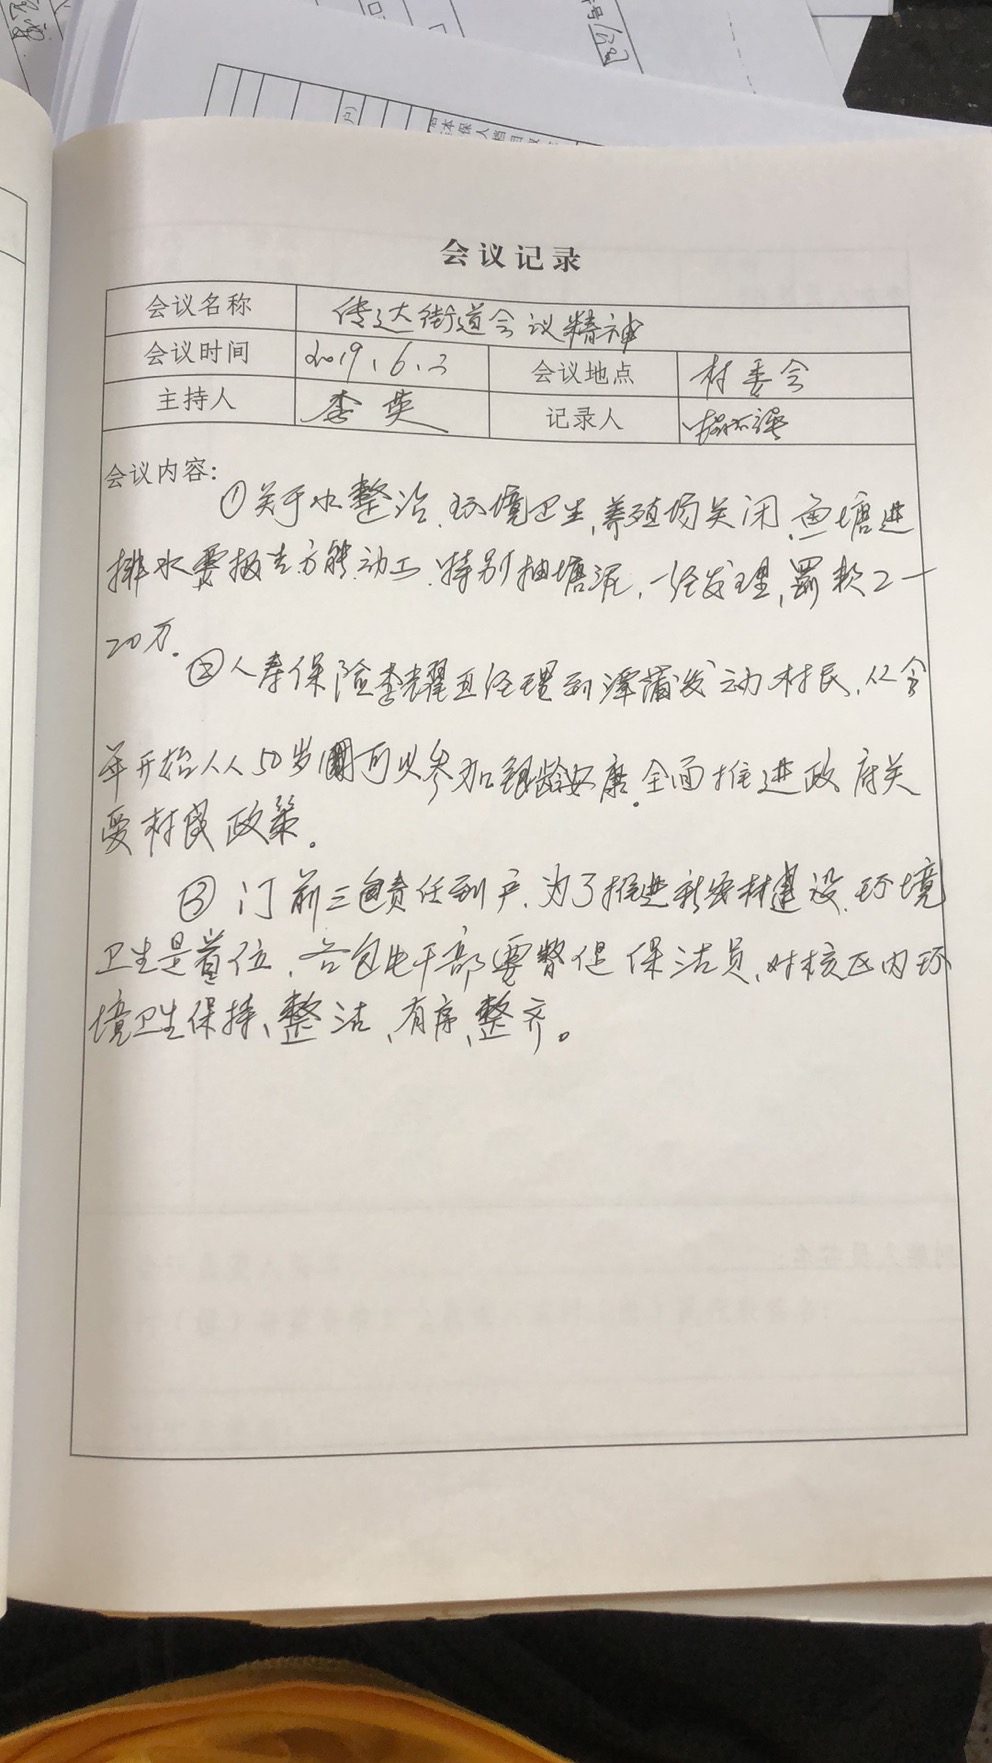 会议记录
会议名称 传达街道会议精神
会议时间 2019.6.2 会议地点 村委会
主持人 李英 记录人
会议内容:
①关于水整治、环境卫生,养殖场关闭,鱼塘进
排水要报告方能动工.特别抽塘泥,一经发理,罚款2一
20万.
②人寿保险李耀 经理到潭蒲发动村民,从今
年开始人人50岁 可以参加银龄安康.全面推进政府关
爱村民政策.
③门前三包责任到户.为了推进新农村建设.环境
卫生是首位,各包 干部要督促保洁员,对核区内环
境卫生保持、整洁、有序、整齐。